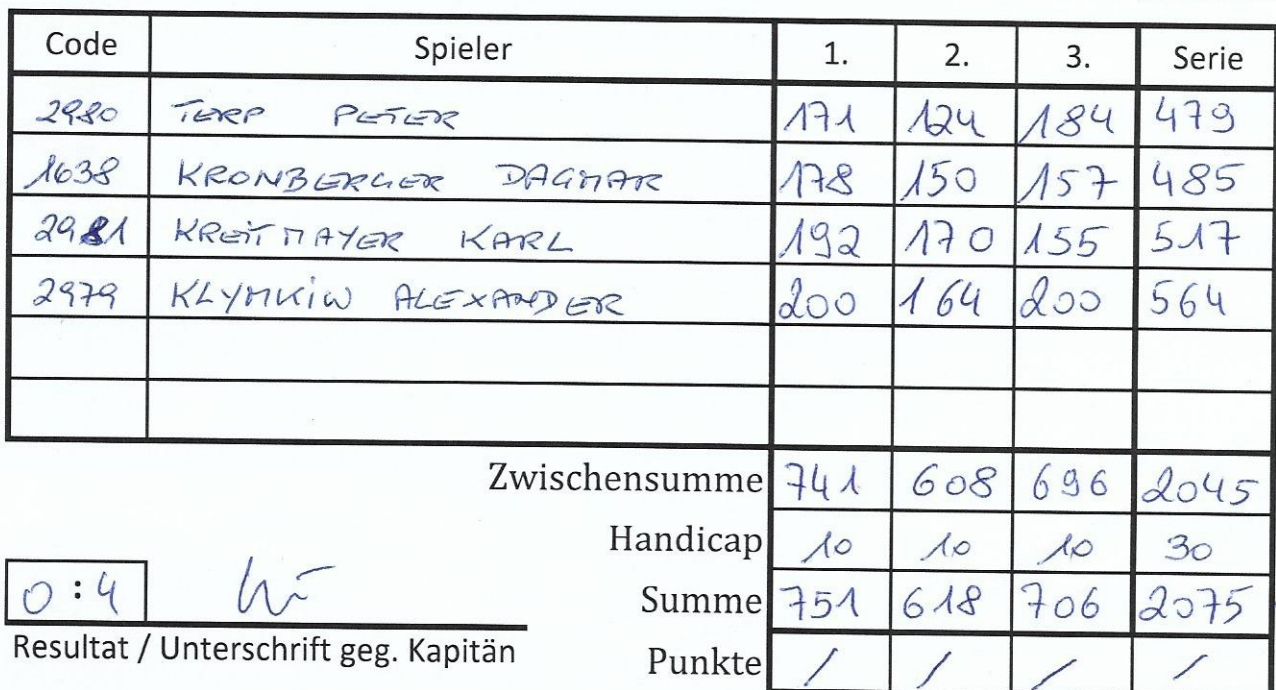 Code Spieler 1. 2. 3. Serie
2980 TERP PETER 171 124 184 479
1638 KRONBERGER DAGMAR 178 150 157 485
2981 KREITMAYER KARL 192 170 155 517
2979 KLYMKIW ALEXANDER 200 164 200 564
Zwischensumme 741 608 696 2045
Handicap 10 10 10 30
0 : 4 Summe 751 618 706 2075
Resultat / Unterschrift geg. Kapitän Punkte / / / /